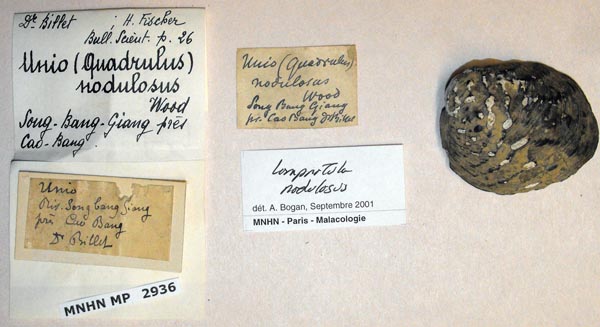 Dr Billet ; H. Fischer
Bull. Scient. p. 26
Unio (Quadrulus)
nodulosus
Wood
Song-Bang-Giang près
Cao-Bang.
Unio
Riv. Song bang Giang
près Cao Bang
Dr Billet
MNHN MP 2936
Unio (Quadrulus)
nodulosus
Wood
Song Bang Giang
pr. Cao Bang Dr Billet
Lamprotula
nodulosus
dét. A. Bogan, Septembre 2001
MNHN - Paris - Malacologie